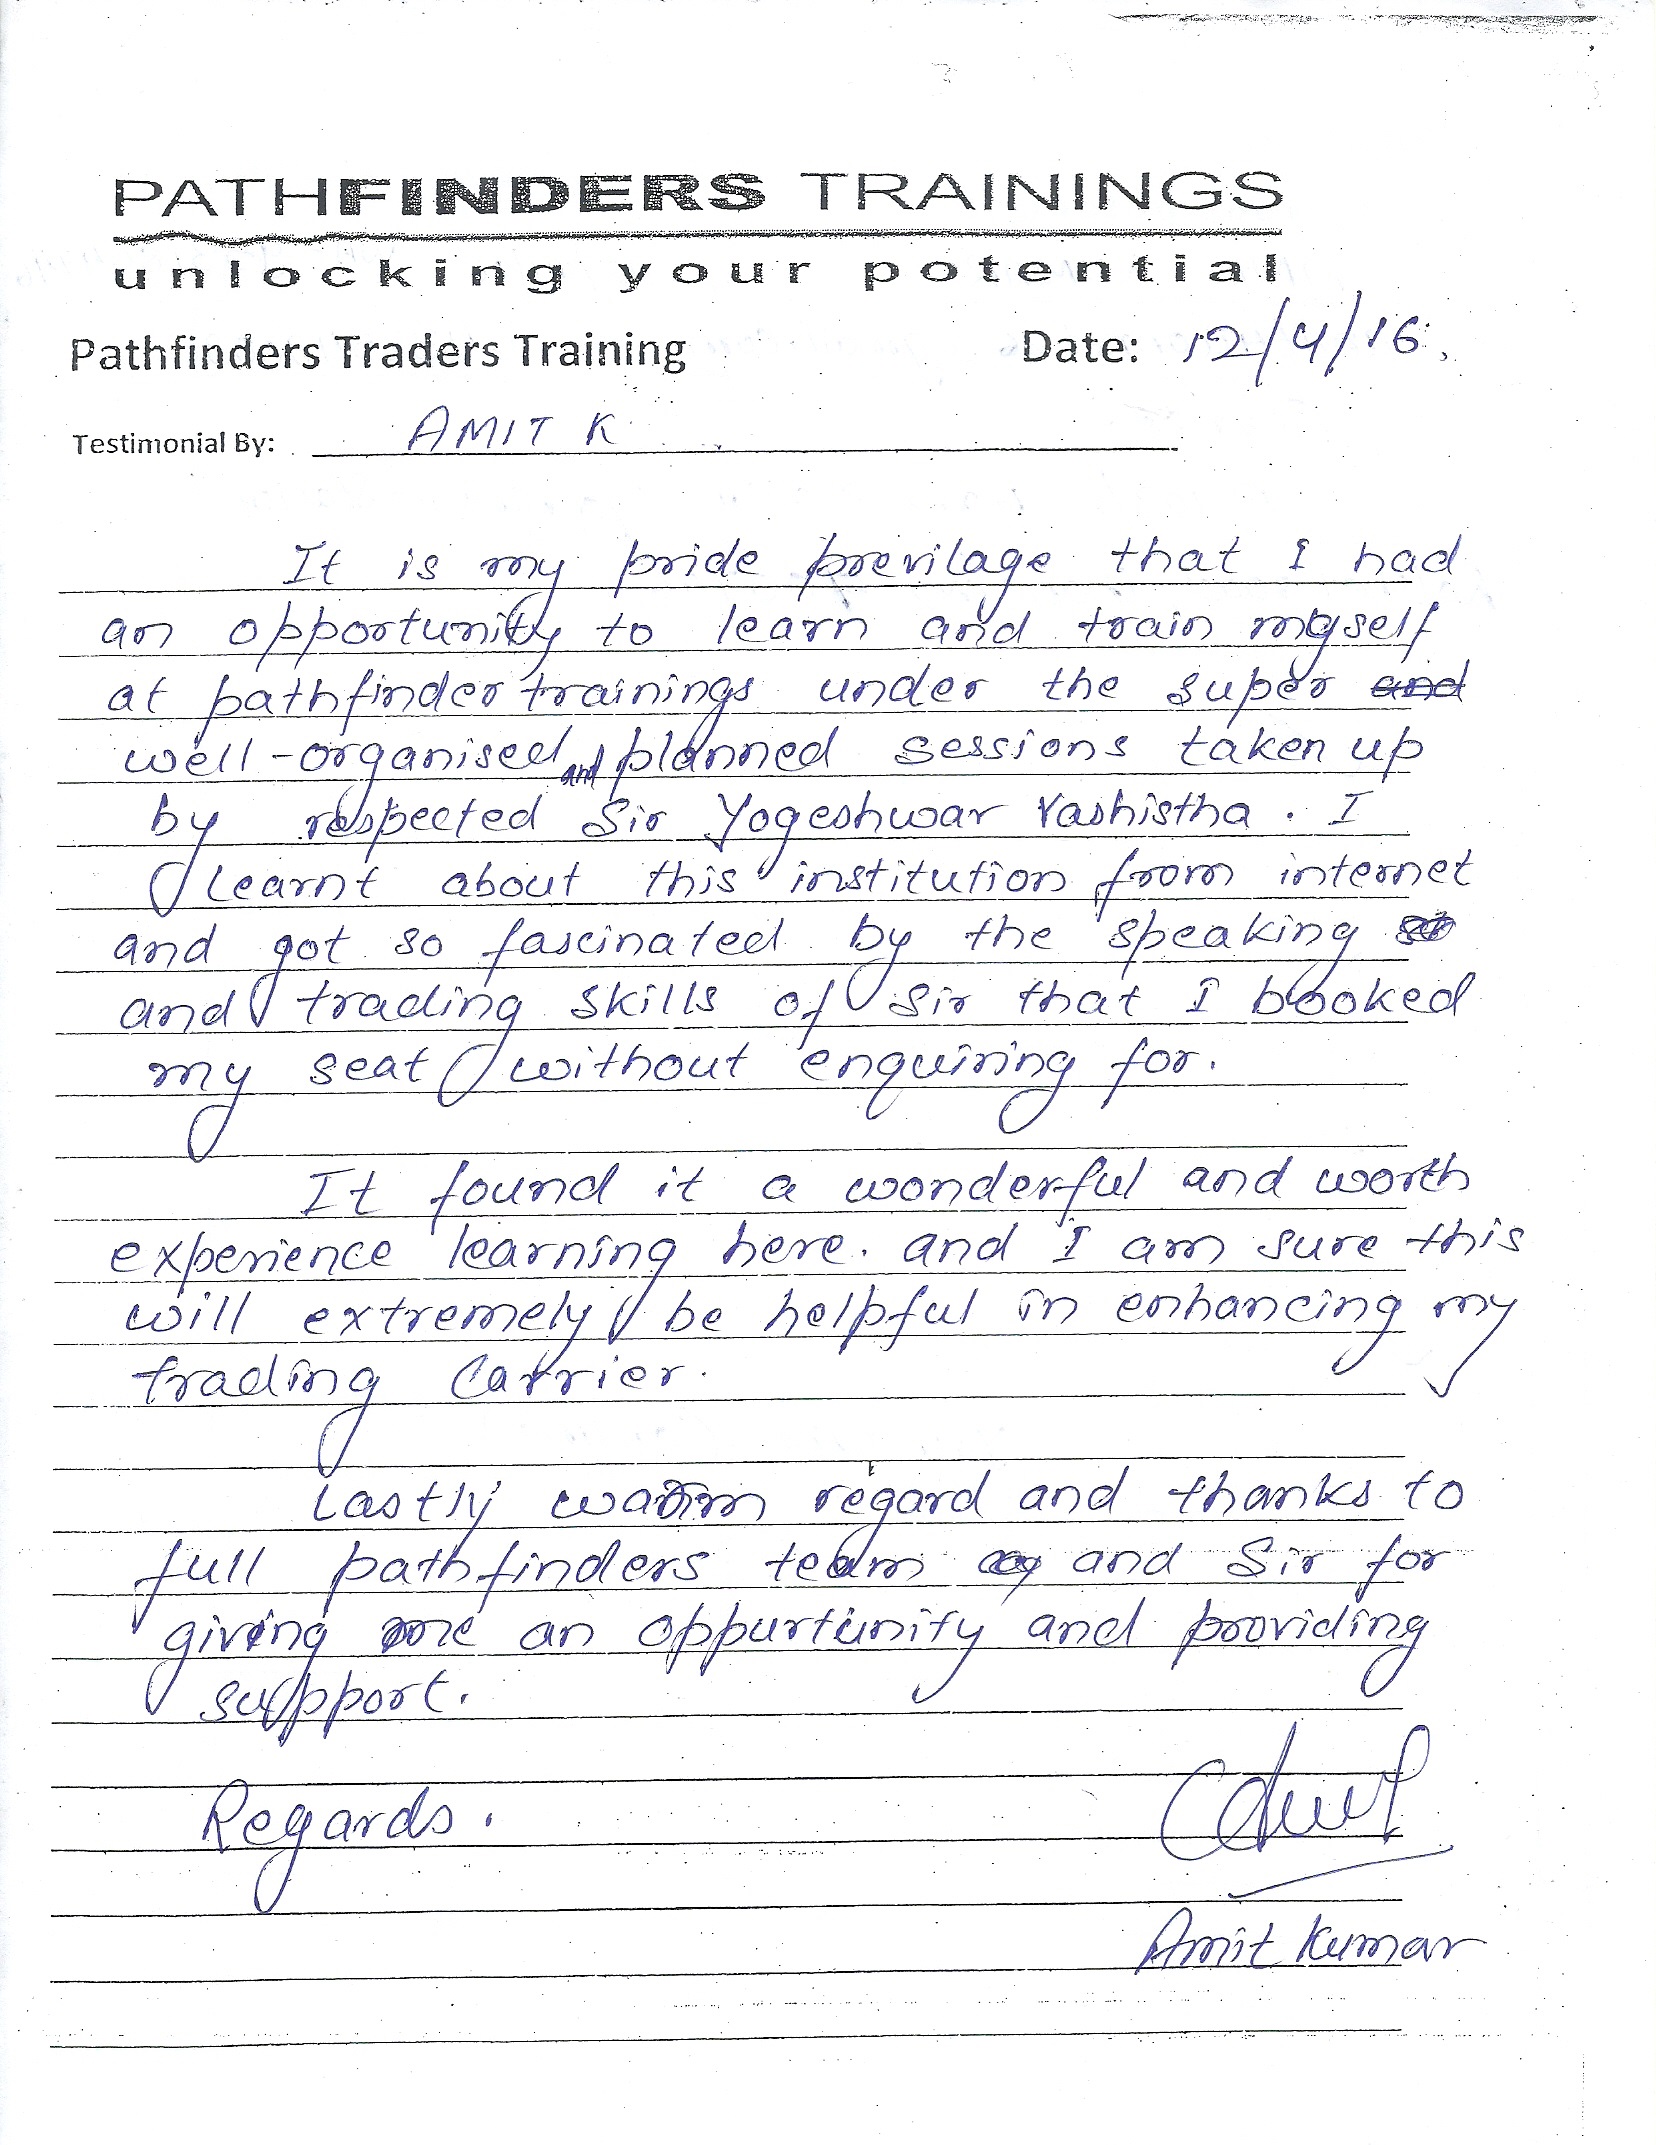 PATHFINDERS TRAININGS
unlocking your potential
Pathfinders Traders Training Date: 12/4/16.
Testimonial By: AMIT K
It is my pride previlage that I had
an opportunity to learn and train myself
at pathfinder trainings under the super and
well-organised and planned sessions taken up
by respected Sir Yogeshwar Vashistha. I
learnt about this institution from internet
and got so fascinated by the speaking
and trading skills of Sir that I booked
my seat without enquiring for.
It found it a wonderful and worth
experience learning here. and I am sure this
will extremely be helpful in enhancing my
trading carrier.
Lastly warm regard and thanks to
full pathfinders team and Sir for
giving me an oppurtunity and providing
support.
Regards.
Amit Kumar